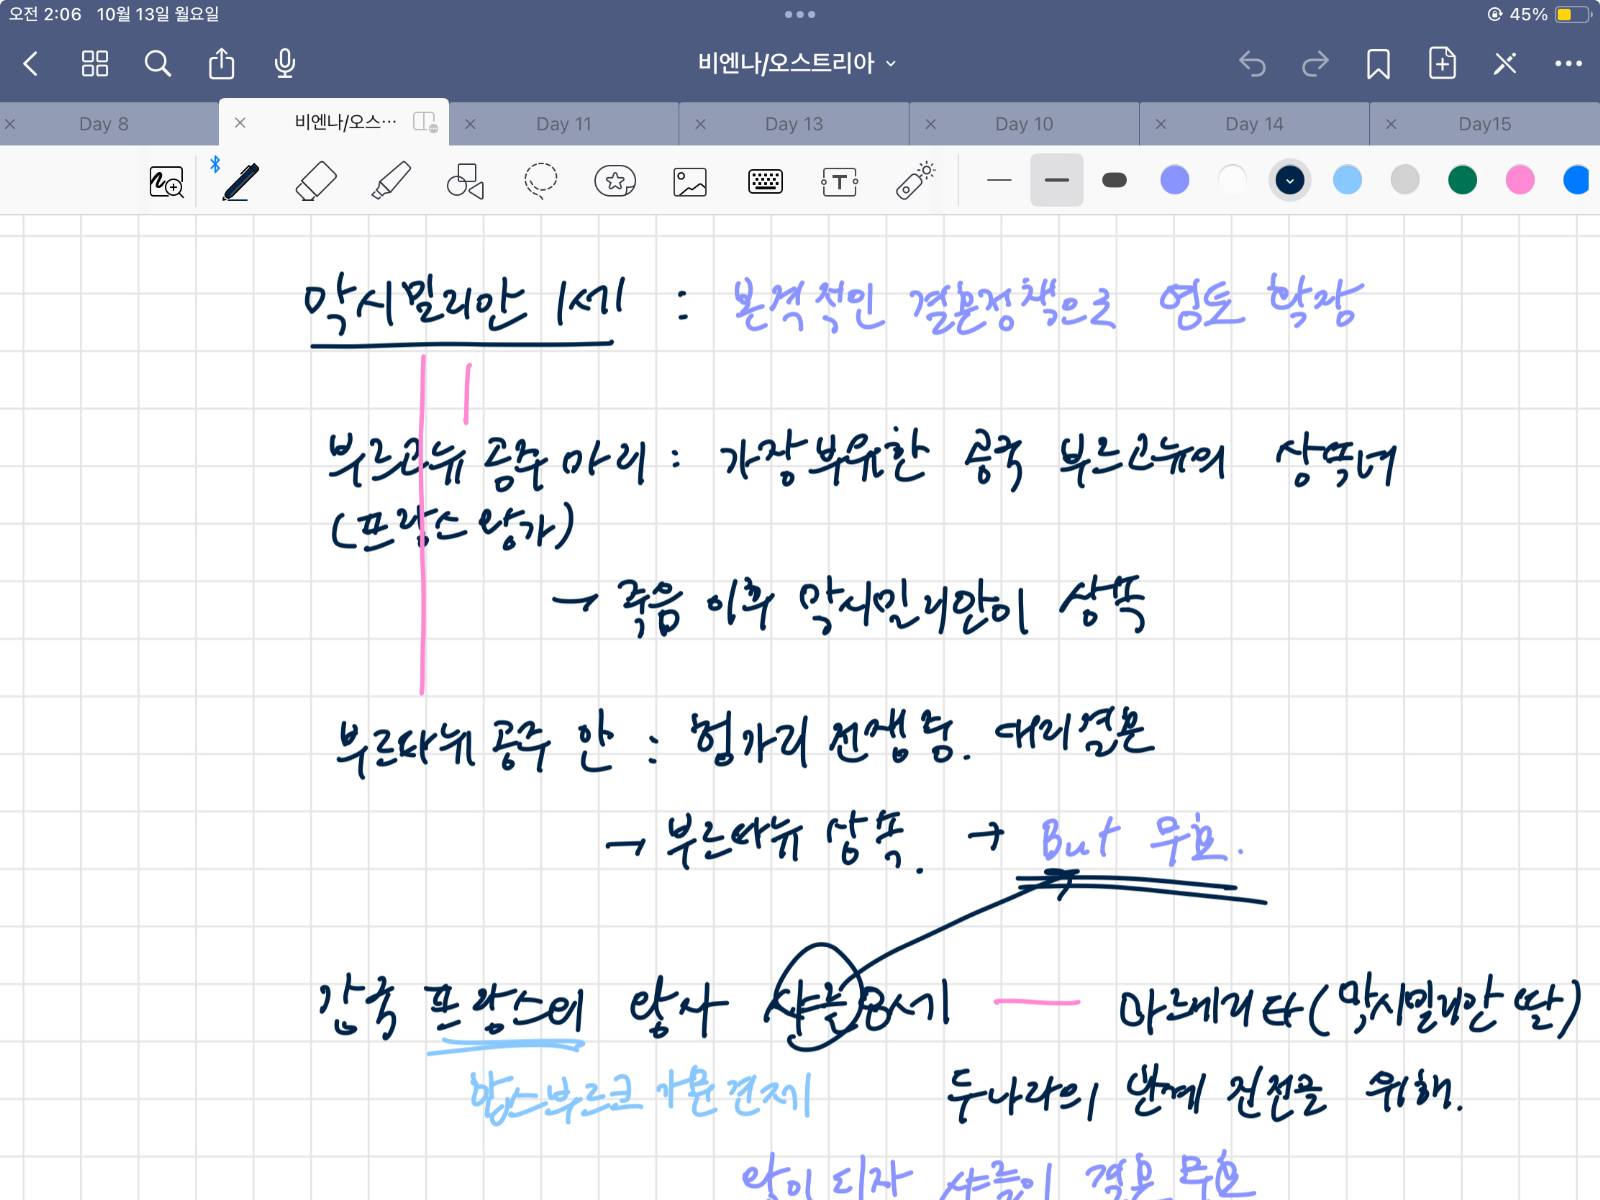 오전 2:06 10월 13일 월요일
45%
비엔나/오스트리아
Day 8
비엔나/오스…
Day 11
Day 13
Day 10
Day 14
Day15
막시밀리안 1세 : 본격적인 결혼정책으로 영토 확장
부르고뉴 공주 마리 : 가장 부유한 공국 부르고뉴의 상속녀
(프랑스 왕가)
→ 죽음 이후 막시밀리안이 상속
부르타뉴 공주 안 : 헝가리 전쟁 중. 대리결혼
→ 부르타뉴 상속. → But 무효.
강국 프랑스의 왕사 샤를 8세기 — 마르게리타(막시밀리안 딸)
합스부르크 가문 견제
두나라의 관계 진전을 위해.
왕이 되자 샤를이 결혼 무효